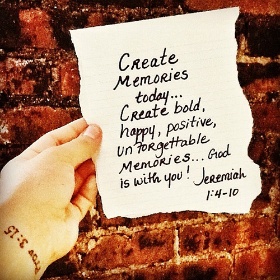 Create
Memories
today...
Create bold,
happy, positive,
unforgettable
Memories... God
is with you! Jeremiah
1:4-10